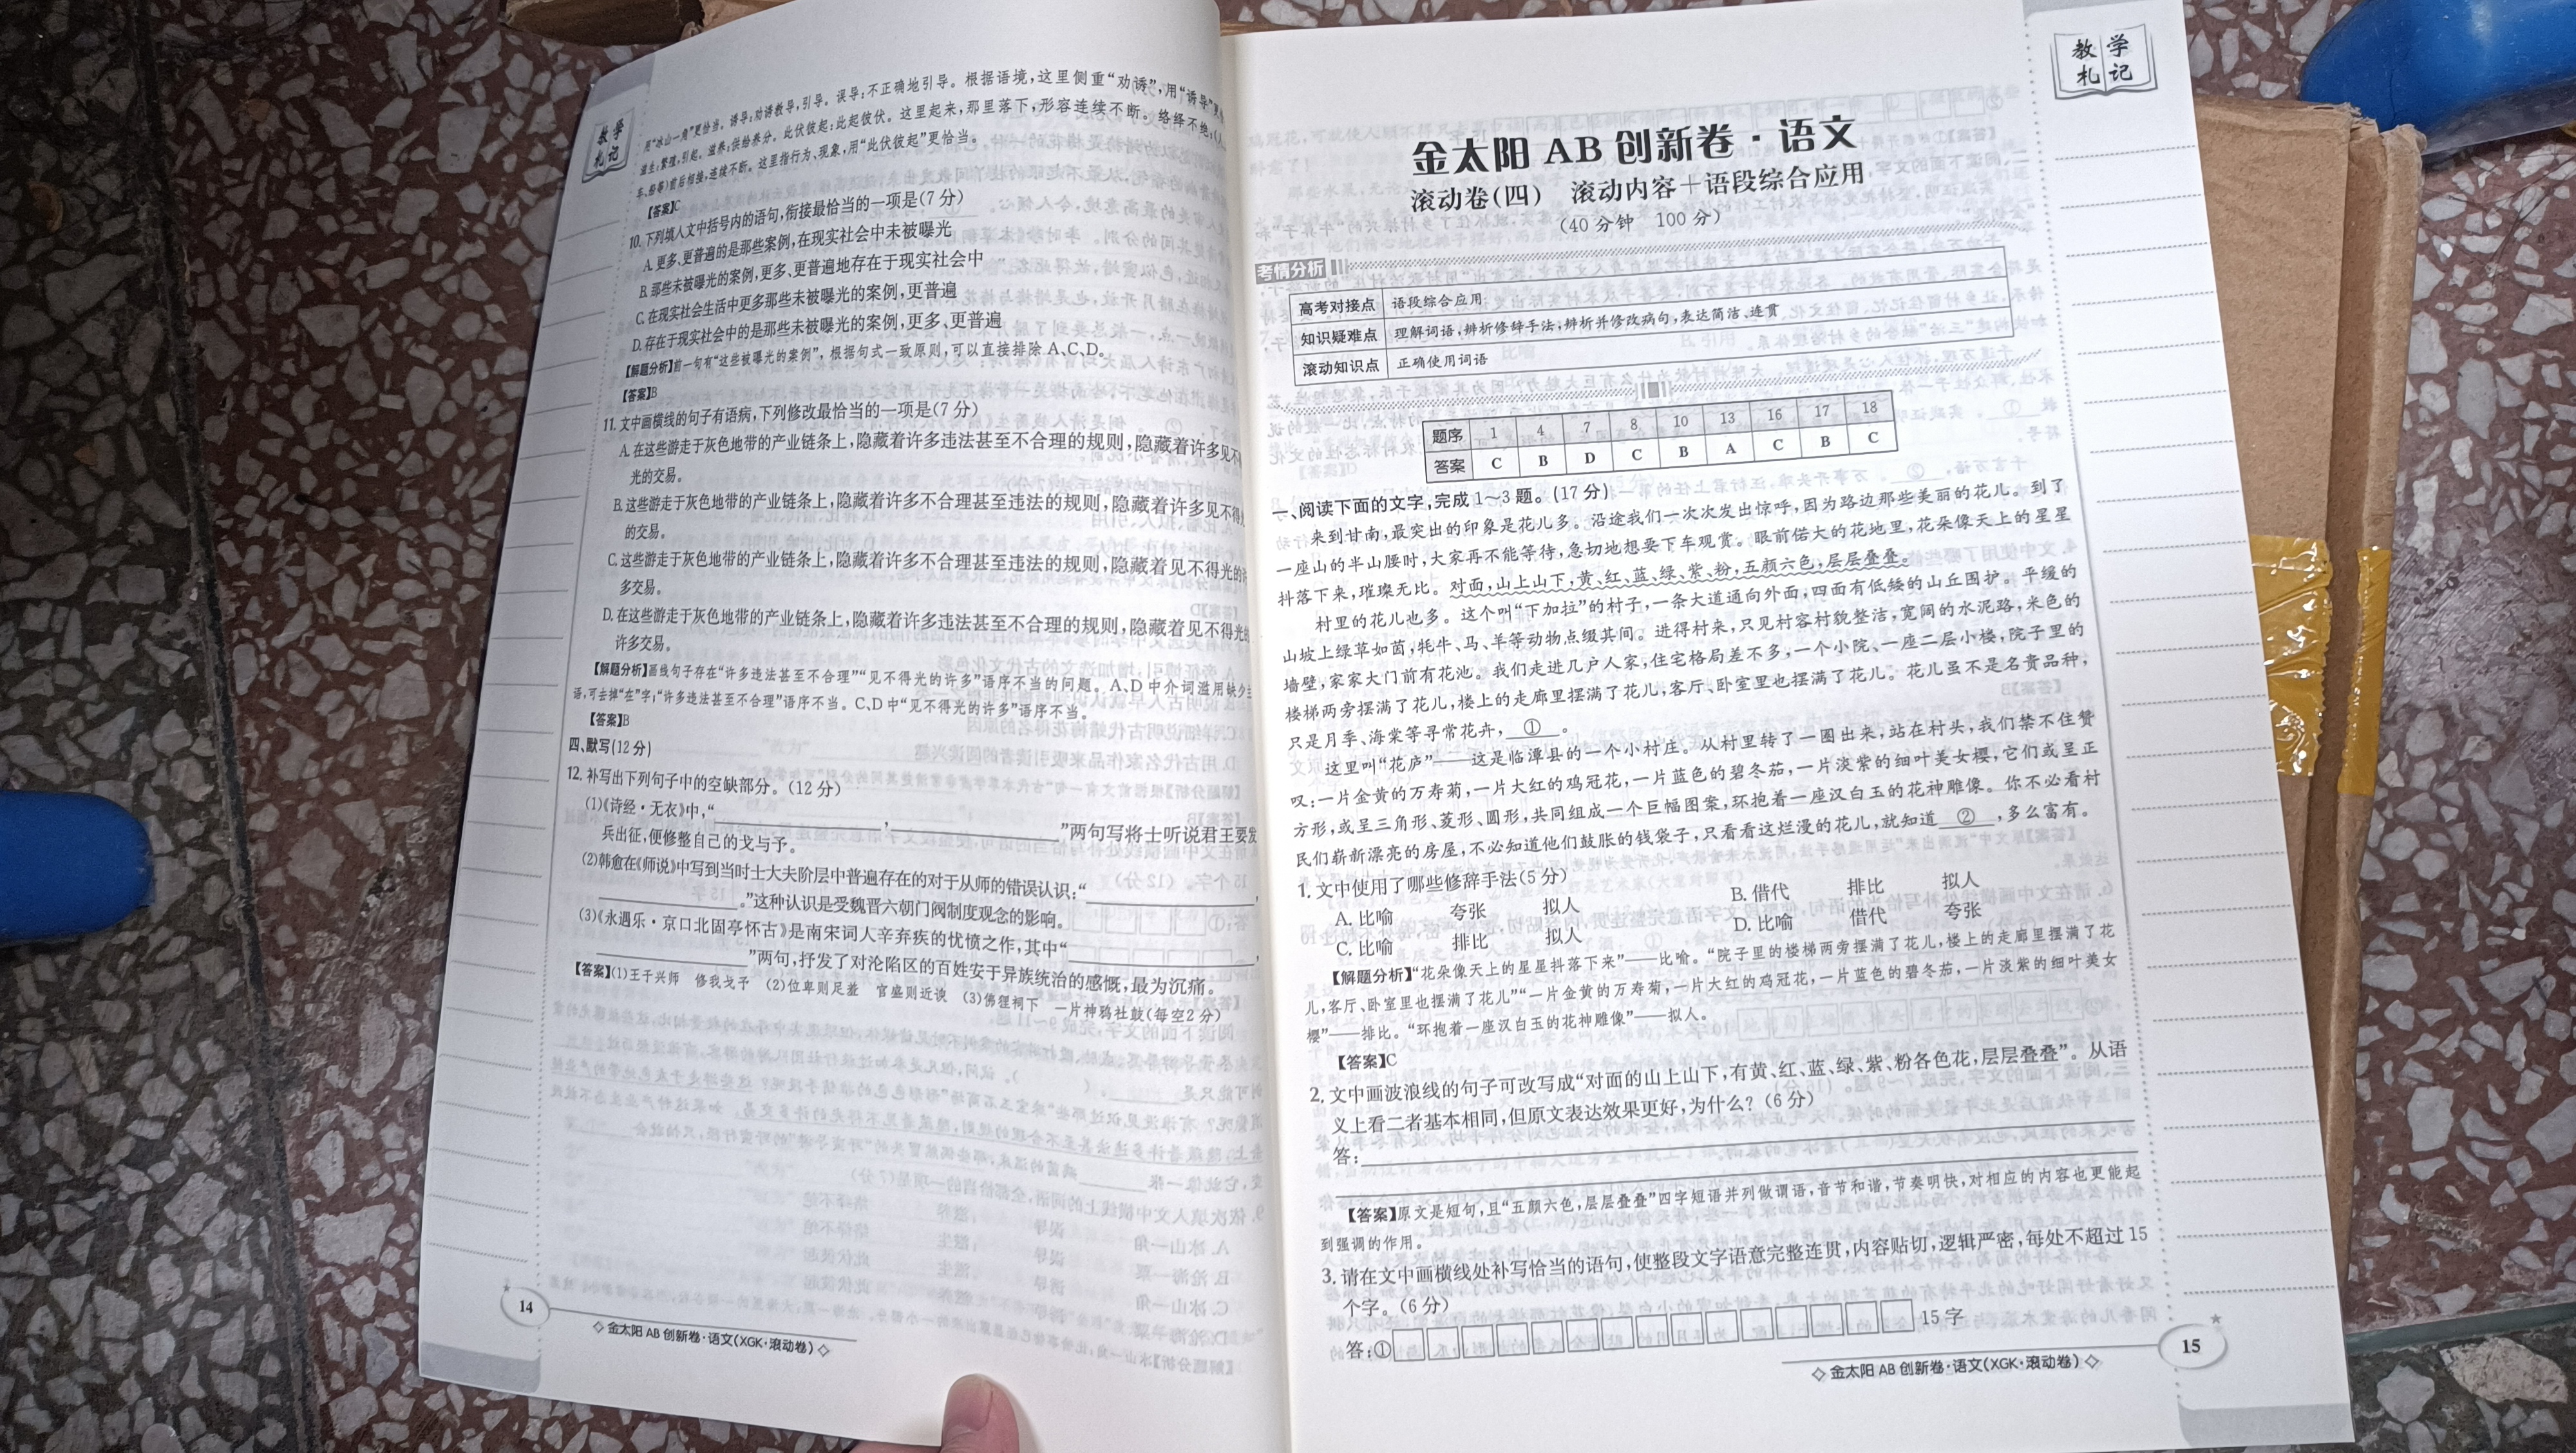 教学
札记
用“冰山一角”更恰当。诱导:劝诱教导,引导。误导:不正确地引导。根据语境,这里侧重“劝诱”,用“诱导”更
滋生:繁殖,引起。滋养:供给养分。此伏彼起:此起彼伏。这里起来,那里落下,形容连续不断。络绎不绝:(人、
车、船等)前后相接,连续不断。这里指行为、现象,用“此伏彼起”更恰当。
【答案】C
10.下列填入文中括号内的语句,衔接最恰当的一项是(7分)
A.更多、更普遍的是那些案例,在现实社会中未被曝光
B.那些未被曝光的案例,更多、更普遍地存在于现实社会中
C.在现实社会生活中更多那些未被曝光的案例,更普遍
D.存在于现实社会中的是那些未被曝光的案例,更多、更普遍
【解题分析】首一句有“这些被曝光的案例”,根据句式一致原则,可以直接排除A、C、D。
【答案】B
11.文中画横线的句子有语病,下列修改最恰当的一项是(7分)
A.在这些游走于灰色地带的产业链条上,隐藏着许多违法甚至不合理的规则,隐藏着许多见不得
光的交易。
B.这些游走于灰色地带的产业链条上,隐藏着许多不合理甚至违法的规则,隐藏着许多见不得
的交易。
C.这些游走于灰色地带的产业链条上,隐藏着许多不合理甚至违法的规则,隐藏着见不得光的
多交易。
D.在这些游走于灰色地带的产业链条上,隐藏着许多违法甚至不合理的规则,隐藏着见不得光的
许多交易。
【解题分析】画线句子存在“许多违法甚至不合理”“见不得光的许多”语序不当的问题。A、D中介词滥用缺少主
语,可去掉“在”字;“许多违法甚至不合理”语序不当。C、D中“见不得光的许多”语序不当。
【答案】B
四、默写(12分)
12.补写出下列句子中的空缺部分。(12分)
(1)《诗经·无衣》中,“________,________”两句写将士听说君王要发
兵出征,便修整自己的戈与予。
(2)韩愈在《师说》中写到当时士大夫阶层中普遍存在的对于从师的错误认识:“________,
________。”这种认识是受魏晋六朝门阀制度观念的影响。
(3)《永遇乐·京口北固亭怀古》是南宋词人辛弃疾的忧愤之作,其中“________,
________”两句,抒发了对沦陷区的百姓安于异族统治的感慨,最为沉痛。
【答案】(1)王于兴师 修我戈予 (2)位卑则足羞 官盛则近谀 (3)佛狸祠下 一片神鸦社鼓(每空2分)
14
◇金太阳AB创新卷·语文(XGK·滚动卷)◇
教学
札记
金太阳AB创新卷·语文
滚动卷(四) 滚动内容+语段综合应用
(40分钟 100分)
考情分析
高考对接点 语段综合应用
知识疑难点 理解词语,辨析修辞手法,辨析并修改病句,表达简洁、连贯
滚动知识点 正确使用词语
题序 1 4 7 8 10 13 16 17 18
答案 C B D C B A C B C
一、阅读下面的文字,完成1~3题。(17分)
来到甘南,最突出的印象是花儿多。沿途我们一次次发出惊呼,因为路边那些美丽的花儿。到了
一座山的半山腰时,大家再不能等待,急切地想要下车观赏。眼前偌大的花地里,花朵像天上的星星
抖落下来,璀璨无比。对面,山上山下,黄、红、蓝、绿、紫、粉,五颜六色,层层叠叠。
村里的花儿也多。这个叫“下加拉”的村子,一条大道通向外面,四面有低矮的山丘围护。平缓的
山坡上绿草如茵,牦牛、马、羊等动物点缀其间。进得村来,只见村容村貌整洁,宽阔的水泥路,米色的
墙壁,家家大门前有花池。我们走进几户人家,住宅格局差不多,一个小院、一座二层小楼,院子里的
楼梯两旁摆满了花儿,楼上的走廊里摆满了花儿,客厅、卧室里也摆满了花儿。花儿虽不是名贵品种,
只是月季、海棠等寻常花卉,__①__。
这里叫“花庐”——这是临潭县的一个小村庄。从村里转了一圈出来,站在村头,我们禁不住赞
叹:一片金黄的万寿菊,一片大红的鸡冠花,一片蓝色的碧冬茄,一片淡紫的细叶美女樱,它们或呈正
方形,或呈三角形、菱形、圆形,共同组成一个巨幅图案,环抱着一座汉白玉的花神雕像。你不必看村
民们崭新漂亮的房屋,不必知道他们鼓胀的钱袋子,只看看这烂漫的花儿,就知道__②__,多么富有。
1.文中使用了哪些修辞手法(5分)
A.比喻 夸张 拟人 B.借代 排比 拟人
C.比喻 排比 拟人 D.比喻 借代 夸张
【解题分析】“花朵像天上的星星抖落下来”——比喻。“院子里的楼梯两旁摆满了花儿,楼上的走廊里摆满了花
儿,客厅、卧室里也摆满了花儿”“一片金黄的万寿菊,一片大红的鸡冠花,一片蓝色的碧冬茄,一片淡紫的细叶美女
樱”——排比。“环抱着一座汉白玉的花神雕像”——拟人。
【答案】C
2.文中画波浪线的句子可改写成“对面的山上山下,有黄、红、蓝、绿、紫、粉各色花,层层叠叠”。从语
义上看二者基本相同,但原文表达效果更好,为什么?(6分)
答:
【答案】原文是短句,且“五颜六色,层层叠叠”四字短语并列做谓语,音节和谐,节奏明快,对相应的内容也更能起
到强调的作用。
3.请在文中画横线处补写恰当的语句,使整段文字语意完整连贯,内容贴切,逻辑严密,每处不超过15
个字。(6分)
答:① 15字
15
◇金太阳AB创新卷·语文(XGK·滚动卷)◇